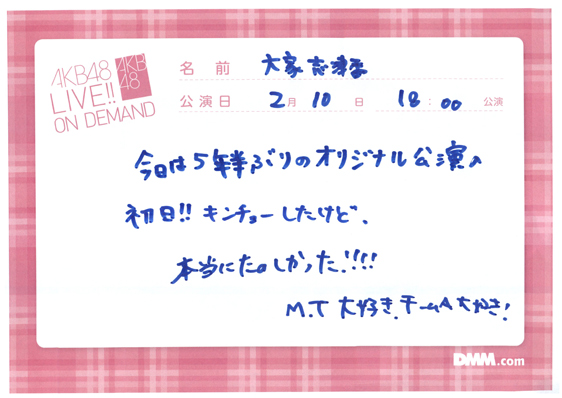 AKB48
LIVE!!
ON DEMAND
AKB
48
名 前 大家志津香
公演日 2月 10日 18:00 公演
今日は5年半ぶりのオリジナル公演の
初日!! キンチョーしたけど、
本当にたのしかった!!!!
M.T 大好き.チームA大好き!
DMM.com